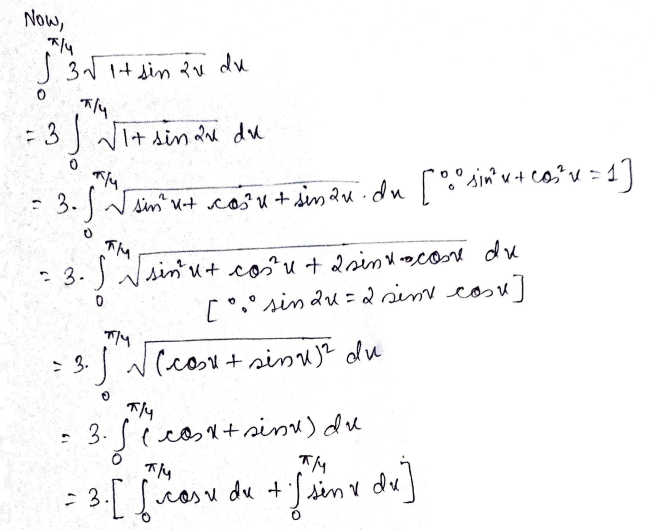 Now,
∫₀^{π/4} 3√(1+ sin 2x) dx
= 3 ∫₀^{π/4} √(1+ sin 2x) dx
= 3. ∫₀^{π/4} √(sin²x + cos²x + sin 2x) . dx [∵ sin²x + cos²x = 1]
= 3. ∫₀^{π/4} √(sin²x + cos²x + 2 sinx cosx) dx
[∵ sin 2x = 2 sinx cosx]
= 3. ∫₀^{π/4} √(cosx + sinx)² dx
= 3. ∫₀^{π/4} (cosx + sinx) dx
= 3.[ ∫₀^{π/4} cosx dx + ∫₀^{π/4} sinx dx]